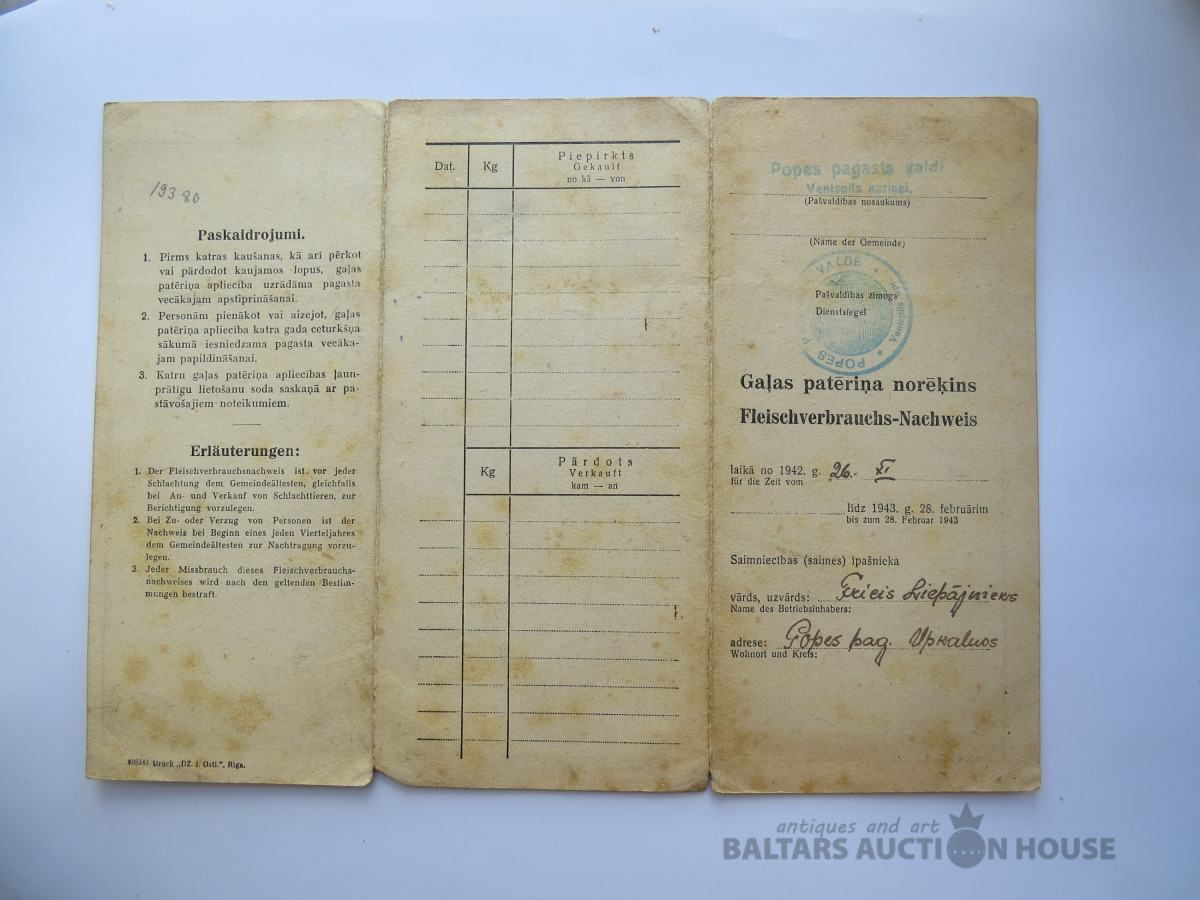 19380
Paskaidrojumi.
1. Pirms katras kaušanas, kā arī pērkot
vai pārdodot kaujamos lopus, gaļas
patēriņa apliecība uzrādāma pagasta
vecākajam apstiprināšanai.
2. Personām pienākot vai aizejot, gaļas
patēriņa apliecība katra gada ceturkšņa
sākumā iesniedzama pagasta vecāka-
jam papildināšanai.
3. Katru gaļas patēriņa apliecības ļaun-
prātīgu lietošanu soda saskaņā ar pa-
stāvošajiem noteikumiem.
Erläuterungen:
1. Der Fleischverbrauchsnachweis ist vor jeder
Schlachtung dem Gemeindeältesten, gleichfalls
bei An- und Verkauf von Schlachttieren, zur
Berichtigung vorzulegen.
2. Bei Zu- oder Verzug von Personen ist der
Nachweis bei Beginn eines jeden Vierteljahres
dem Gemeindeältesten zur Nachtragung vorzu-
legen.
3. Jeder Missbrauch dieses Fleischverbrauchs-
nachweises wird nach den geltenden Bestim-
mungen bestraft.
Druck „DZ. i. Ostl.", Riga.
Dat. Kg Piepirkts
Gekauft
no kā — von
Kg Pārdots
Verkauft
kam — an
Popes pagasta valdi
Ventspils apriņķī,
(Pašvaldības nosaukums)
(Name der Gemeinde)
POPES VALDE Ventspils apr.
Pašvaldības zīmogs
Dienstsiegel
Gaļas patēriņa norēķins
Fleischverbrauchs-Nachweis
laikā no 1942. g. 26. XI
für die Zeit vom
līdz 1943. g. 28. februārim
bis zum 28. Februar 1943
Saimniecības (saimes) īpašnieka
vārds, uzvārds: Fricis Liepājnieks
Name des Betriebsinhabers:
adrese: Popes pag. Upkalnos
Wohnort und Kreis:
antiques and art
BALTARS AUCTION HOUSE